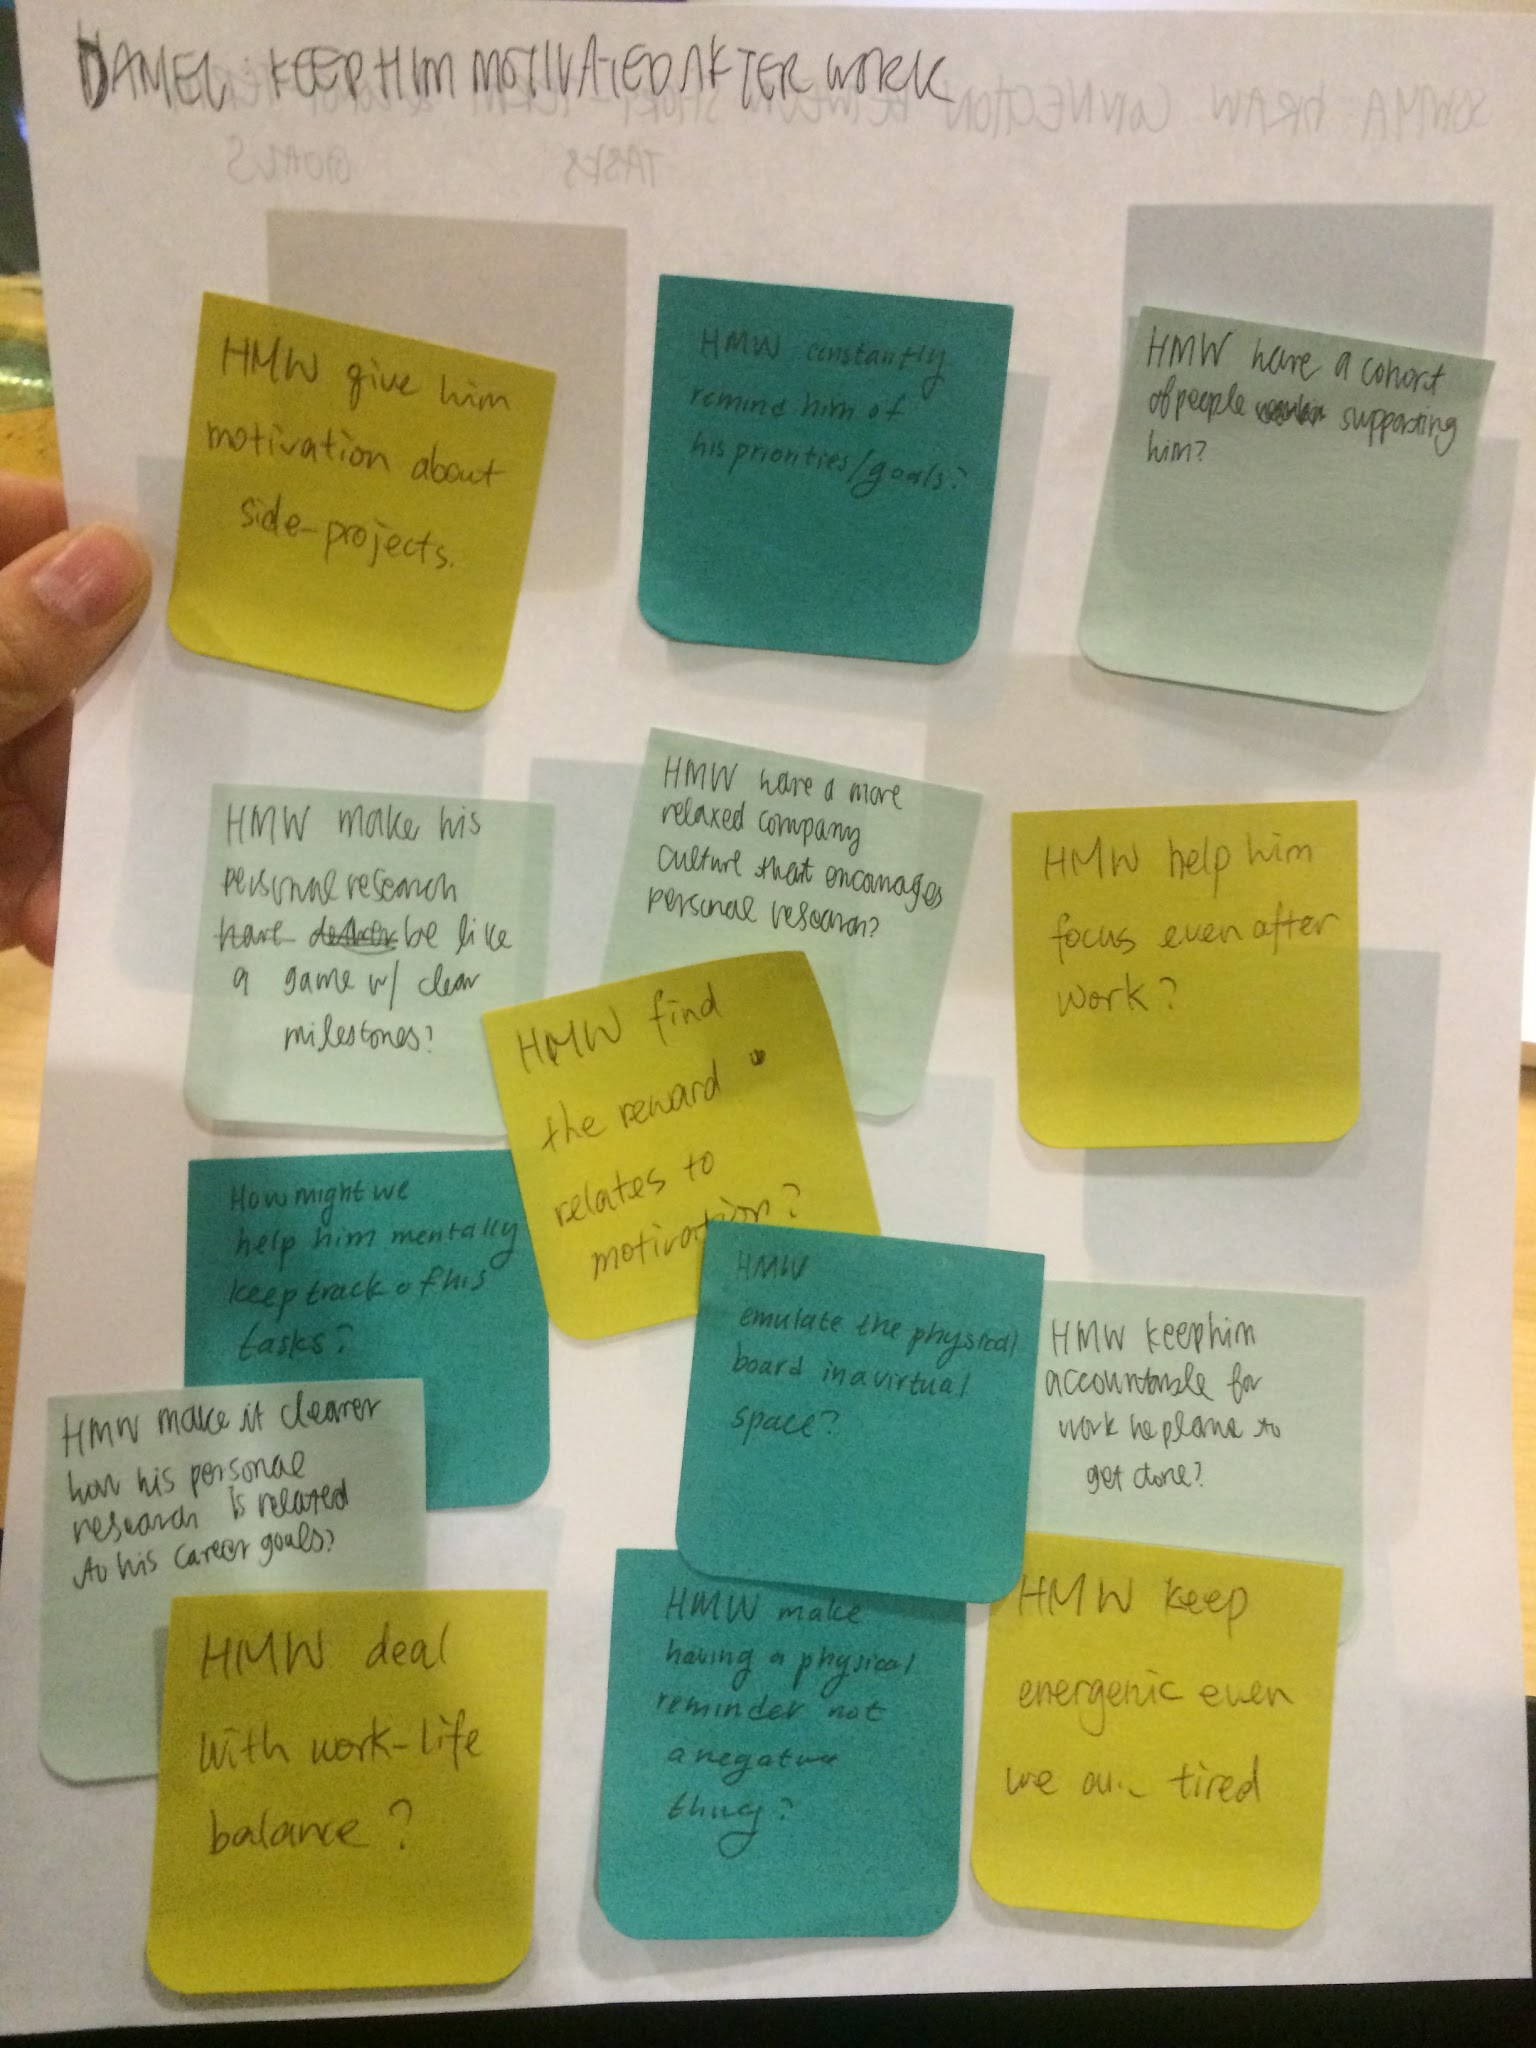 DANIEL: KEEP HIM MOTIVATED AFTER WORK
HMW give him
motivation about
side-projects.
HMW constantly
remind him of
his priorities/goals?
HMW have a cohort
of people supporting
him?
HMW make his
personal research
have be like
a game w/ clear
milestones?
HMW have a more
relaxed company
culture that encourages
personal research?
HMW help him
focus even after
work?
HMW find
the reward
relates to
motivation?
How might we
help him mentally
keep track of his
tasks?
HMW
emulate the physical
board in a virtual
space?
HMW keep him
accountable for
work he plans to
get done?
HMW make it clearer
how his personal
research is related
to his career goals?
HMW deal
with work-life
balance?
HMW make
having a physical
reminder not
a negative
thing?
HMW keep
energenic even
we tired
SOMYA: DRAW CONNECTION BETWEEN SHORT-TERM
TASKS
GOALS